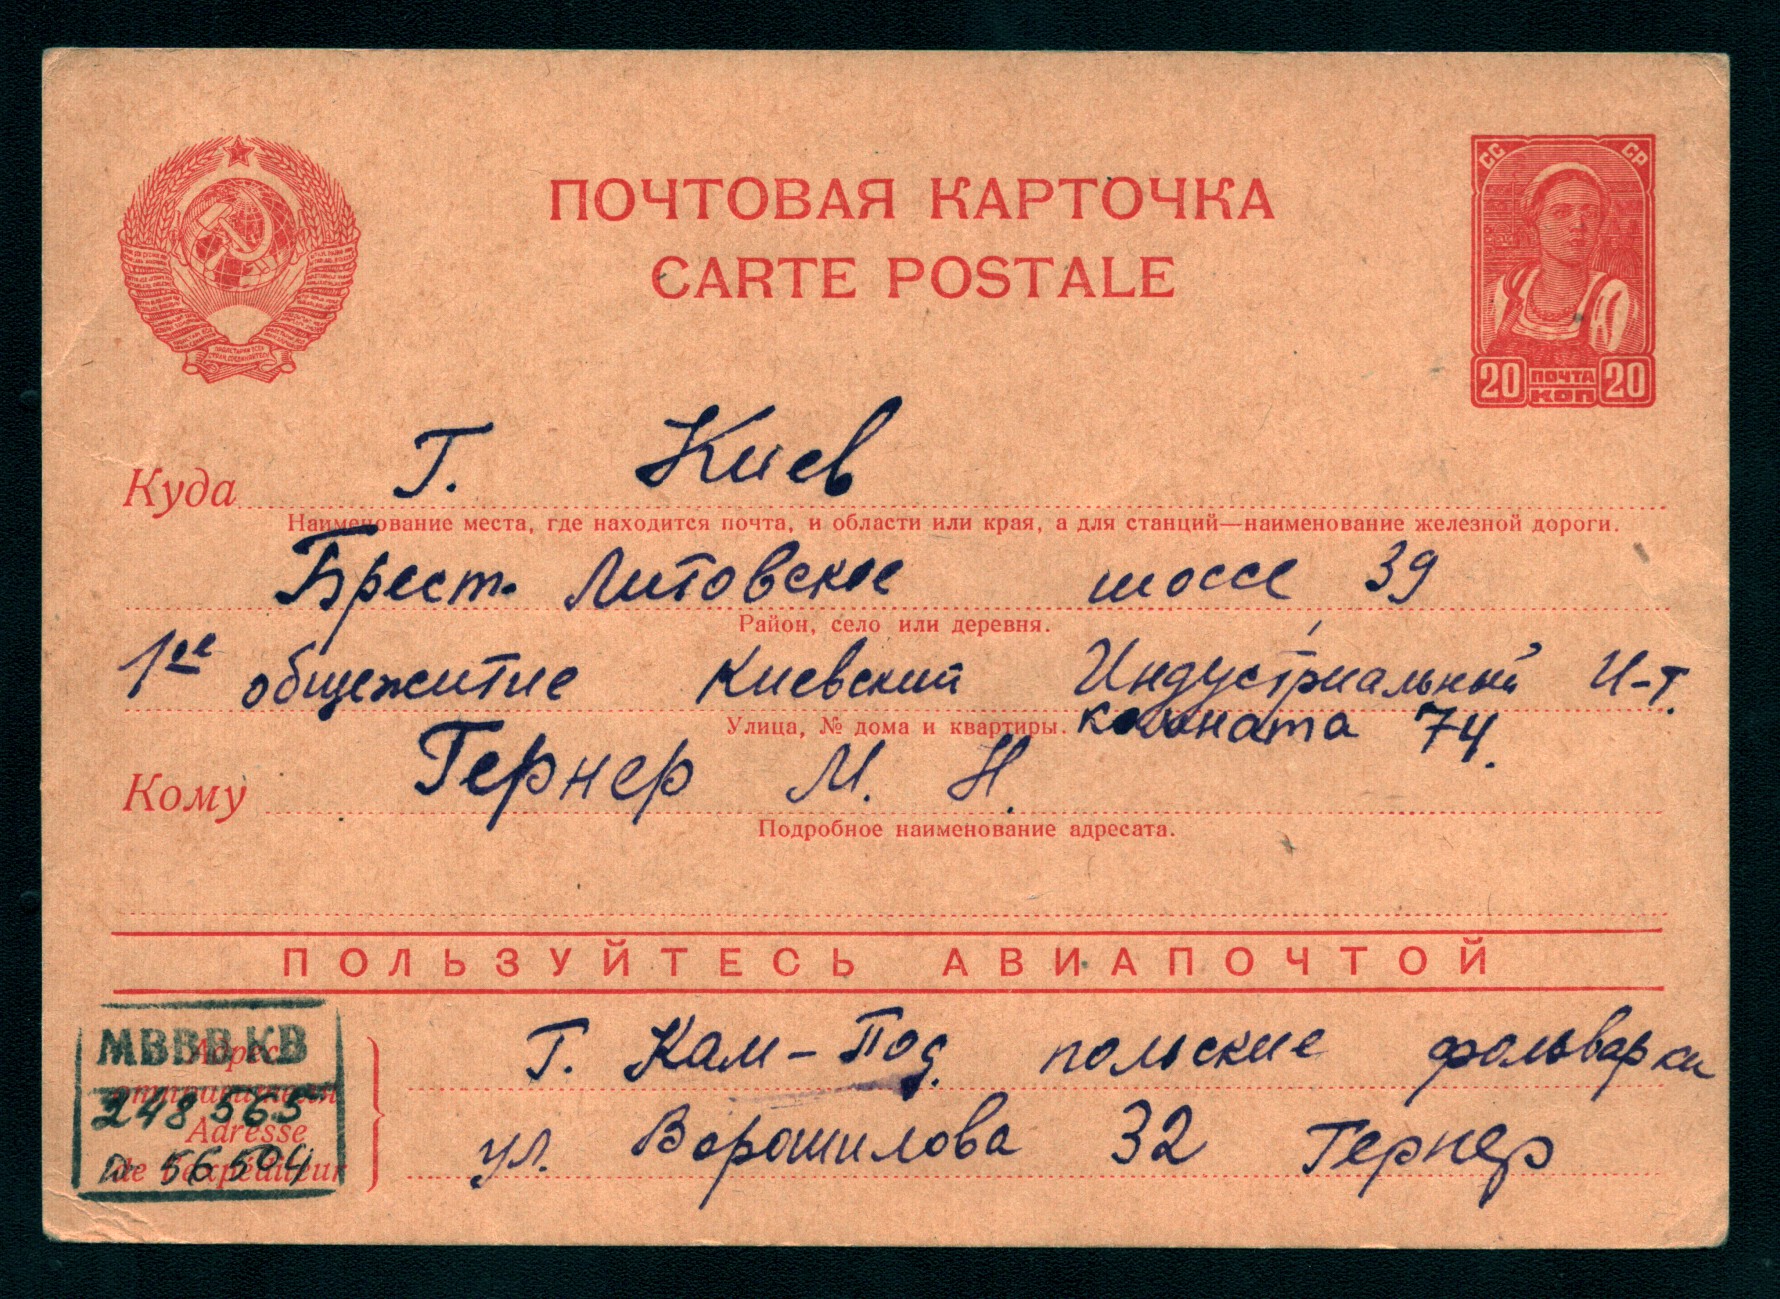 ПОЧТОВАЯ КАРТОЧКА
CARTE POSTALE
СС СР
20 ПОЧТА КОП 20
Куда Г. Киев
Наименование места, где находится почта, и области или края, а для станций—наименование железной дороги.
Брест. Литовское шоссе 39
Район, село или деревня.
1ое общежитие Киевский Индустриальный И-т.
Улица, № дома и квартиры. комната 74.
Кому Гернер М. Н.
Подробное наименование адресата.
ПОЛЬЗУЙТЕСЬ АВИАПОЧТОЙ
МВВВКВ
Адрес
отправителя
248565
Adresse
de l'expéditeur
56504
Г. Кам-Под. польские фольварки
ул. Ворошилова 32 Гернер